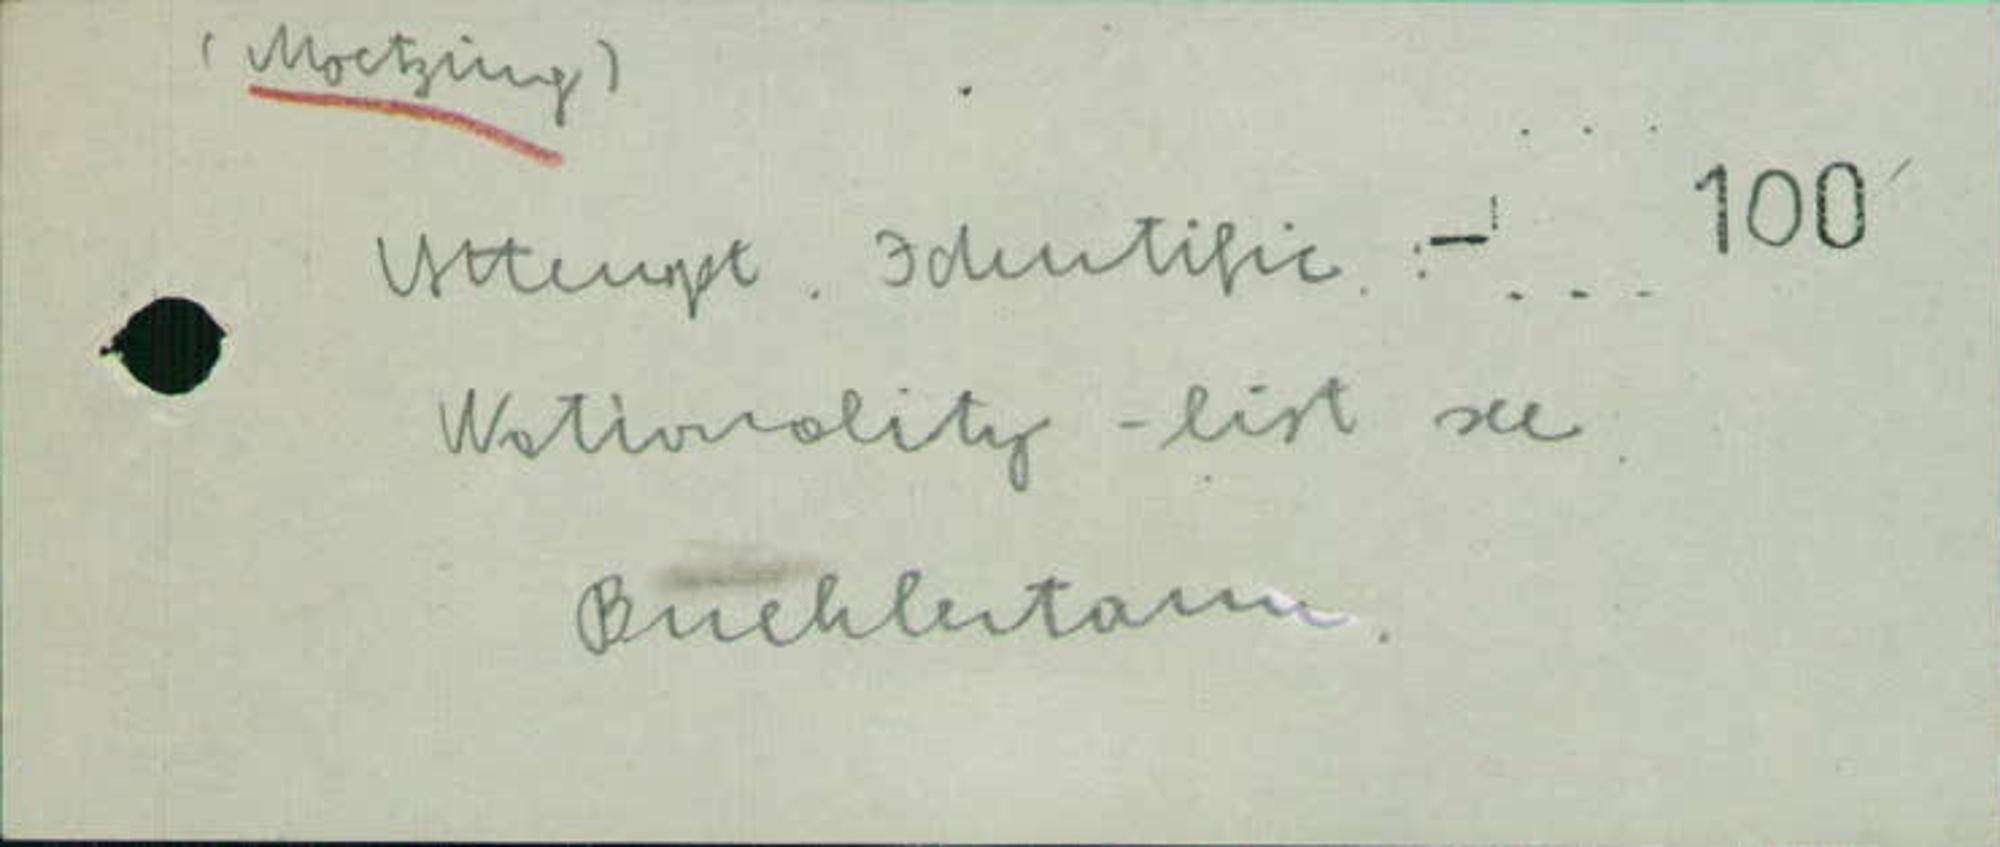 (Moetzing)
Attempt. Identific. 100
Nationality - list see
Buehlertann.